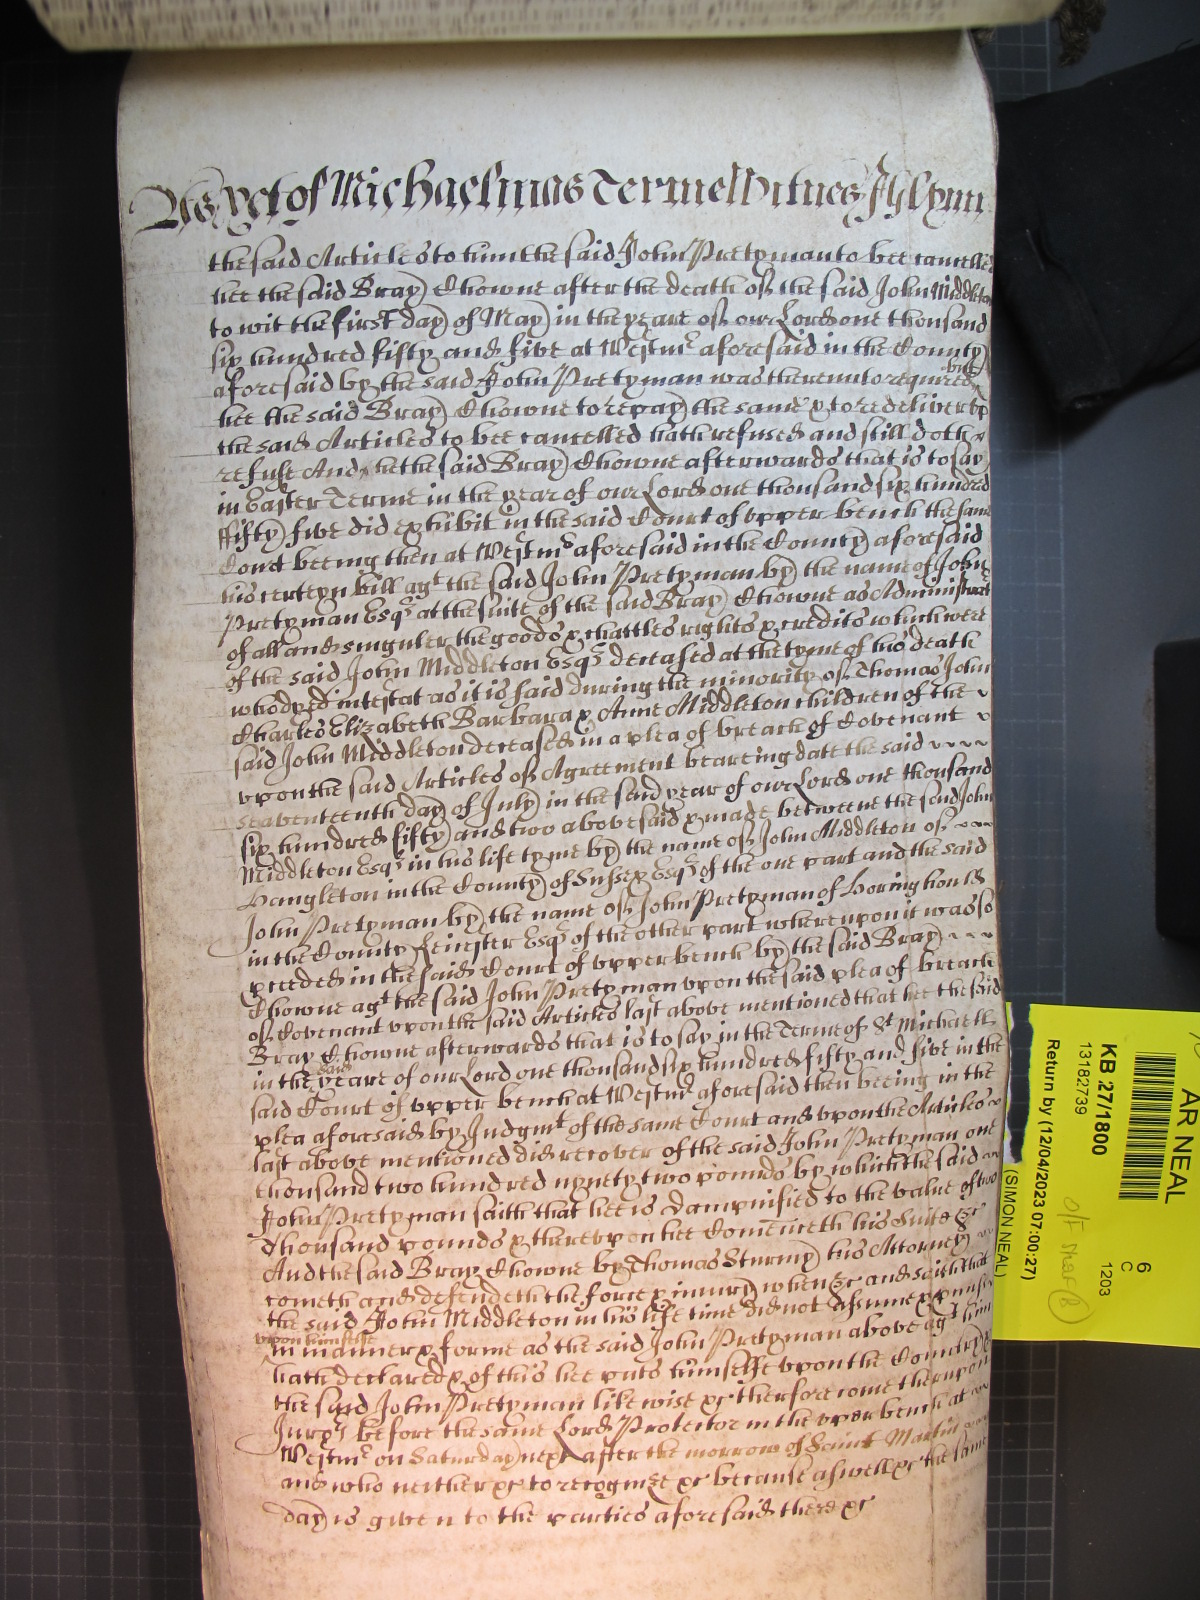 As yet of Michaelmas Terme Witnes
the said Articles to him the said John Pretyman to bee cancelled
hee the said Bray Chowne after the death of the said John Middleton
to wit the first day of May in the yeare of our Lord one thousand
six hundred fifty and five at Westmr aforesaid in the County
aforesaid by the said John Pretyman was thereunto required
but
hee the said Bray Chowne to repay the same & to redeliver vp
the said Articles to bee cancelled hath refused and still doth
refuse And hee the said Bray Chowne afterwards that is to say
in Easter Terme in the year of our Lord one thousand six hundred
ffifty five did exhibit in the said Court of vpper bench the same
Court beeing then at Westmr aforesaid in the County aforesaid
his certeyn bill agt the said John Pretyman by the name of John
Pretyman Esqr at the suite of the said Bray Chowne as Administrator
of all and singuler the goods & chattles rights & credits which were
of the said John Middleton Esqr deceased at the tyme of his death
who dyed intestat as it is said during the minority of Thomas John
Charles Elizabeth Barbara & Anne Middleton children of the
said John Middleton deceased in a plea of breach of Covenant
vpon the said Articles of Agreement beareing date the said
seaventeenth day of July in the said year of our Lord one thousand
six hundred fifty and two abovesaid & made betweene the said John
Middleton Esqr in his life tyme by the name of John Middleton of
Hangleton in the County of Sussex Esqr of the one part and the said
John Pretyman by the name of John Pretyman of Horinghould
in the County Leicester Esqr of the other part wherevpon it was so
pceeded in the said Court of vpper bench by the said Bray
Chowne agt the said John Pretyman vpon the said plea of breach
of Covenant vpon the said Articles last above mentioned that hee the said
Bray Chowne afterwards that is to say in the Terme of St Michaell
said
in the yeare of our Lord one thousand six hundred fifty and five in the
said Court of vpper bench at Westmr aforesaid then beeing in the
plea aforesaid by Judgmt of the same Court and vpon the Articles
last above mentioned did recover of the said John Pretyman one
thousand two hundred nynety two pounds by which the said
John Pretyman saith that hee is dampnified to the value of two
thousand pounds & therevpon hee bringeth his Suite &c
And the said Bray Chowne by Thomas Sturmy his Attorney
cometh and defendeth the force & iniury when &c and saith that
the said John Middleton in his life time did not assume & pmise
vpon himselfe
in manner & forme as the said John Pretyman above agt him
hath declared & of this hee puts himselfe vpon the Country &
the said John Pretyman likewise &c therfore come therupon
Jurys before the same Lord Protector in the vpper bench at
Westmr on Saturday next after the morrow of Saint Martin
and who neither &c to recognize &c because aswell &c the same
day is given to the parties aforesaid there &c
AR NEAL
6
C
1203
KB 27/1800
13182739
Return by (12/04/2023 07:00:27)
(SIMON NEAL)